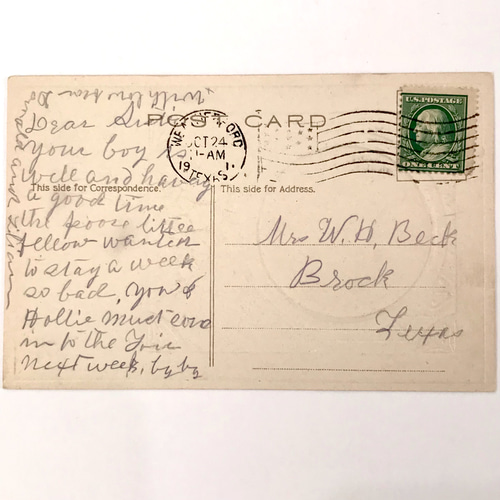 POST CARD
WEATHERFORD
OCT 24
-AM
191 .
TEXAS
U.S. POSTAGE
ONE CENT
This side for Correspondence.
This side for Address.
Dear
your boy is
well and having
a good time
the poore little
fellow wanted
to stay a week
so bad, You &
Hollie must com
in to the
next week, by by
with love
Mrs W. H. Beck
Brock
Texas